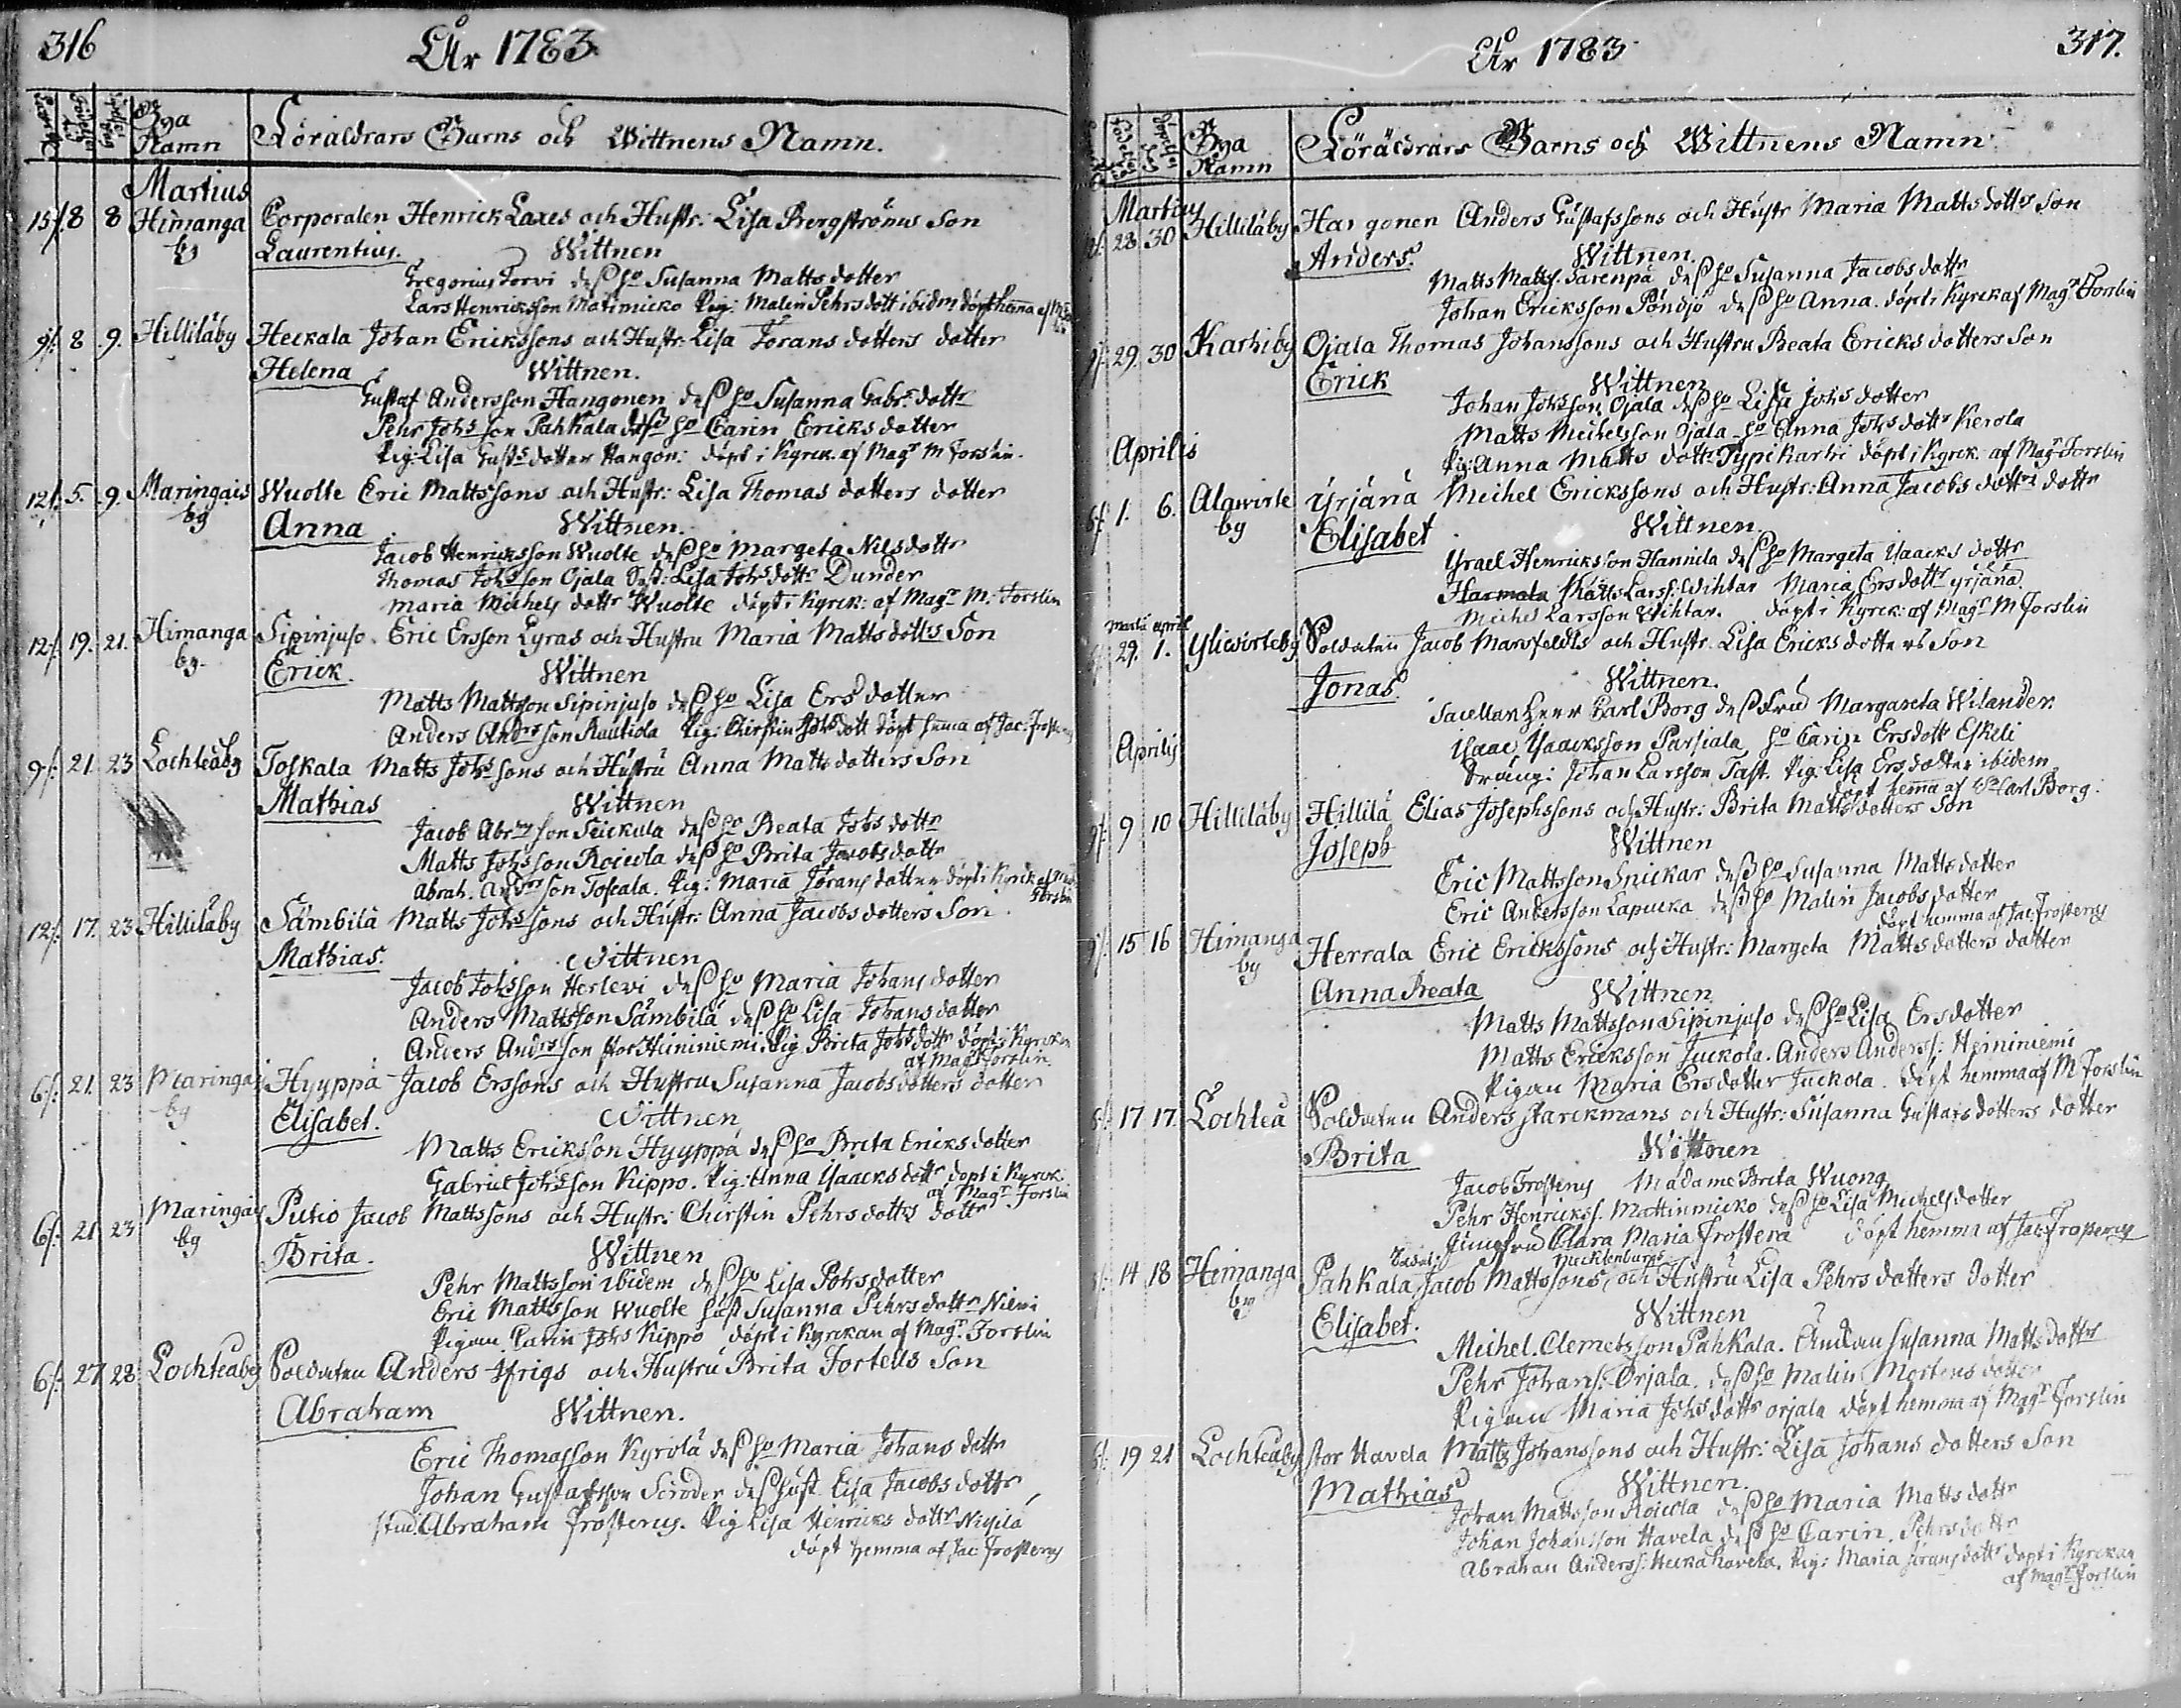 316
År 1783
Bya
Namn
Föräldrars Barns och Wittnens Namn.
Martius
15/. 8 8 Himanga Corporalen Henrick Laxes och Hustr: Lisa Bergströms Son
by Laurentius. Wittnen
Gregorius Torvi deß ho Susanna Matts dotter
Lars Henricksson Matimicko Pig: Malin Pehrs dott ibidm döpt hema af
9/. 8 9. Hilliläby Heckala Johan Erickssons och Hustr. Lisa Jörans dotters dotter
Helena Wittnen.
Gustaf Andersson Hangonen deß ho Susanna Gabrs dottr
Pehr Johsson Pahkala deß ho Carin Ericks dotter
Pig: Lisa Gusts dotter Hangon: döpt i Kyrck. af Magr M Forslin.
12/. 5. 9. Maringais Wuolte Eric Mattssons och Hustr: Lisa Thomas dotters dotter
by Anna Wittnen.
Jacob Henricksson Wuolte deß ho Margeta Nils dottr
Thomas Johsson Ojala Lisa Johs dottr Dunder
Maria Michels dottr Wuolte döpt i Kyrck: af Magr M: Forslin
12/. 19. 21. Himanga Sipinjuso. Eric Ersson Lyras och Hustru Maria Matts dottrs Son
by. Erick. Wittnen
Matts Mattsson Sipinjuso deß ho Lisa Ers dotter
Anders Andrsson Ruutiola Pig: Chirstin Johs dott döpt hema af Jac: Frosterus
9/. 21. 23 Lochteåby Toskala Matts Johssons och Hustru Anna Matts dotters Son
Mathias Wittnen
Jacob Abrmsson Seickula deß ho Beata Johs dottr
Matts Johsson Roicola deß ho Brita Jacobs dottr
Abrah. Andrsson Toscala. Pig: Maria Jörans dotter döpt i Kyrck af Magr
Forslin
12/. 17. 23 Hilliläby Sämbilä Matts Johssons och Hustr: Anna Jacobs dotters Son
Mathias. Wittnen
Jacob Johsson Herlevi deß ho Maria Johans dotter
Anders Mattsson Sämbilä deß ho Lisa Johans dotter
Anders Andrsson stor Heininiemi. Pig Brita Johs dottr döpt i Kyrckan
af Magr Forslin.
6/. 21. 23 Maringais Hyyppä Jacob Erssons och Hustru Susanna Jacobs dotters dotter
by Elisabet. Wittnen
Matts Ericksson Hyyppä deß ho Brita Ericks dotter
Gabriel Johsson Kippo. Pig: Anna Ysaacks dottr döpt i Kyrck.
af Magr Forslin
6/. 21 23 Maringais Putio Jacob Mattssons och Hustr: Chirstin Pehrs dottrs dottr
by Brita. Wittnen
Pehr Mattsson ibidem deß ho Lisa Johs dotter
Eric Mattsson Wuolte hust Susanna Pehrs dottr Niemi
Pigan Carin Johs Kippo döpt i Kyrckan af Magr. Forslin
6/. 27 28 Lochteåby Soldaten Anders Ifrigs och Hustru Brita Fortells Son
Abraham Wittnen.
Eric Thomasson Kyrölä deß ho Maria Johans dottr
Johan Gustafsson Scröder deß hust Lisa Jacobs dottr
stud. Abraham Frosterus. Pig Lisa Henricks dottr Niyilä
döpt hemma af Jac Frosterus
År 1783
317.
Bya
Namn
Föräldrars Barns och Wittnens Namn.
Martius
28 30 Hilliläby Hangonen Anders Gustafssons och Hustr Maria Matts dottrs Son
Anders. Wittnen.
Matts Mattss. Särenpä deß ho Susanna Jacobs dottr
Johan Ericksson Pöndjö deß ho Anna. döpt i Kyrck af Magr Forslin
9/. 29. 30 Karhiby Ojala Thomas Johanssons och Hustru Beata Ericks dotters Son
Erick Wittnen
Johan Johsson Ojala deß ho Lisa Johs dotter
Matts Michelsson Ojala ho Anna Johs dottr Kerola
Pig: Anna Matts dottr Typi Karhi döpt i Kyrck. af Magr Forslin
Aprilis
6/. 1. 6. Alawirte Yrjänä Michel Erickssons och Hustr: Anna Jacobs dottrs dottr
by Elisabet Wittnen
Ysrael Henricksson Hannila deß ho Margeta Ysaacks dottr
Harmala Matts Larss: Wihtar Maria Ers dottr yrjänä
Michel Larsson Wihtar. döpt i Kyrck: af Magr M Forslin
Marti April
29. 1. Yliwirteby Soldaten Jacob Marsfeldts och Hustr. Lisa Ericks dotters Son
Jonas. Wittnen.
Sacellan Herr Carl Borg deß Fru Margareta Wilander.
Ysaac Ysaacksson Parsiala ho Carin Ers dottr Eskeli
Dräng: Johan Larsson Tast. Pig: Lisa Ers dotter ibidem
döpt hemma af Carl Borg.
Aprilis
9/. 9 10 Hilliläby Hillilä Elias Josephssons och Hustr: Brita Matts dotters Son
Joseph Wittnen
Eric Mattsson Snickar deß ho Susanna Matts dotter
Eric Andersson Lapucka deß ho Malin Jacobs dotter
döpt hemma af Jac: Frosterus
9/. 15 16 Himanga Herrala Eric Erickssons och Hustr: Margeta Matts dotters dotter
by Anna Beata Wittnen
Matts Mattsson Sipinjuso deß ho Lisa Ersdotter
Matts Ericksson Juckola. Anders Anderss: Heininiemi
Pigan Maria Ersdotter Juckola. döpt hemma af M Forslin
6/. 17 17. Lochteå Soldaten Anders starckmans och Hustr: Susanna Gustafs dotters dotter
Brita Wittnen
Jacob Frosterus Madame Brita Wuong
Pehr Henrickss. Mattinmicko deß ho Lisa Michels dotter
Jungfru Clara Maria Frostera döpt hemma af Jac: Frosterus
Mecklenburgs
14 18 Himanga Pahkala Jacob Mattssons och Hustru Lisa Pehrs dotters dotter
by Elisabet. Wittnen
Michel. Clemetsson Pahkala. Enckan Susanna Matts dottr
Pehr Johanss: Orjala. deß ho Malin Mårtens dotter
Pigan Maria Johs dottr orjala döpt hemma af Magr Forslin
6/. 19 21 Lochteåby stor Havela Matts Johanssons och Hustr: Lisa Johans dotters Son
Mathias Wittnen.
Johan Mattsson Roicola deß ho Maria Matts dottr
Johan Johansson Havela deß ho Carin. Pehrs dottr
Abraham Anderss: Heikahavela. Pig: Maria Jörans dottr döpt i Kyrckan
af Magr Forslin